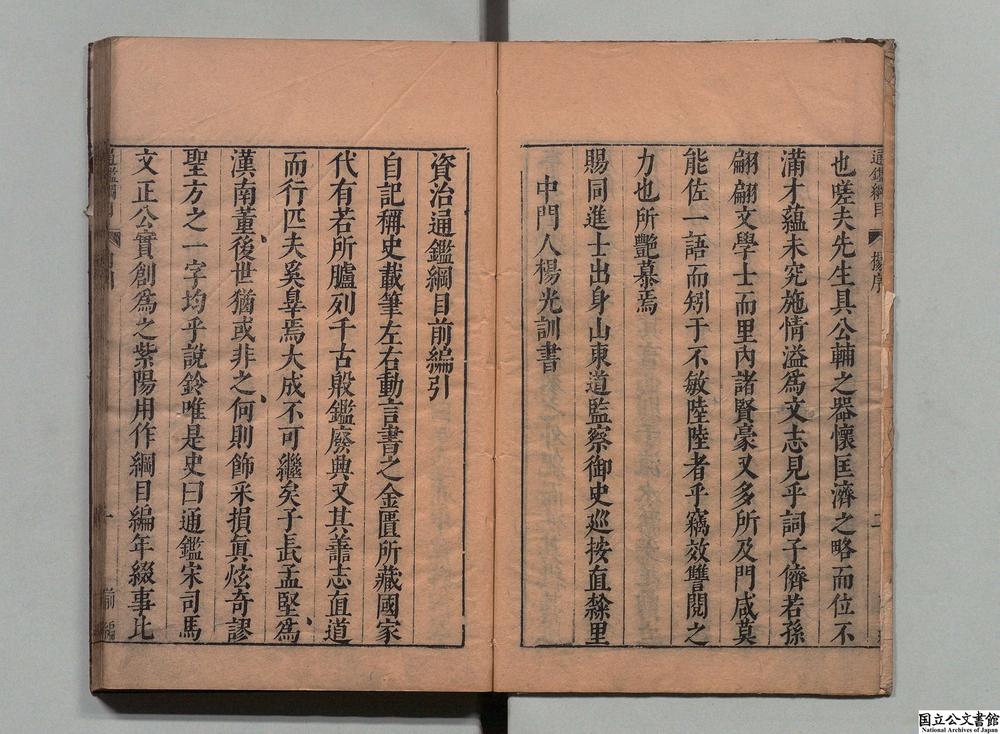 通鑑綱目
楊序
二
也嗟夫先生具公輔之器懷匡濟之略而位不
滿才蘊未究施情溢爲文志見乎詞子儕若孫
翩翩文學士而里內諸賢豪又多所及門咸莫
能佐一語而矧于不敏陸陸者乎竊效讐閱之
力也所艷慕焉
賜同進士出身山東道監察御史巡按直隸里
中門人楊光訓書
資治通鑑綱目前編引
自記稱史載筆左右動言書之金匱所藏國家
代有若所臚列千古殷鑑廢典又其善志直道
而行匹夫奚辠焉大成不可繼矣子長孟堅爲
漢南董後世猶或非之何則飾采損眞炫奇謬
聖方之一字均乎說鈴唯是史曰通鑑宋司馬
文正公實創爲之紫陽用作綱目編年綴事比
通鑑綱目
一
前編
国立公文書館
National Archives of Japan